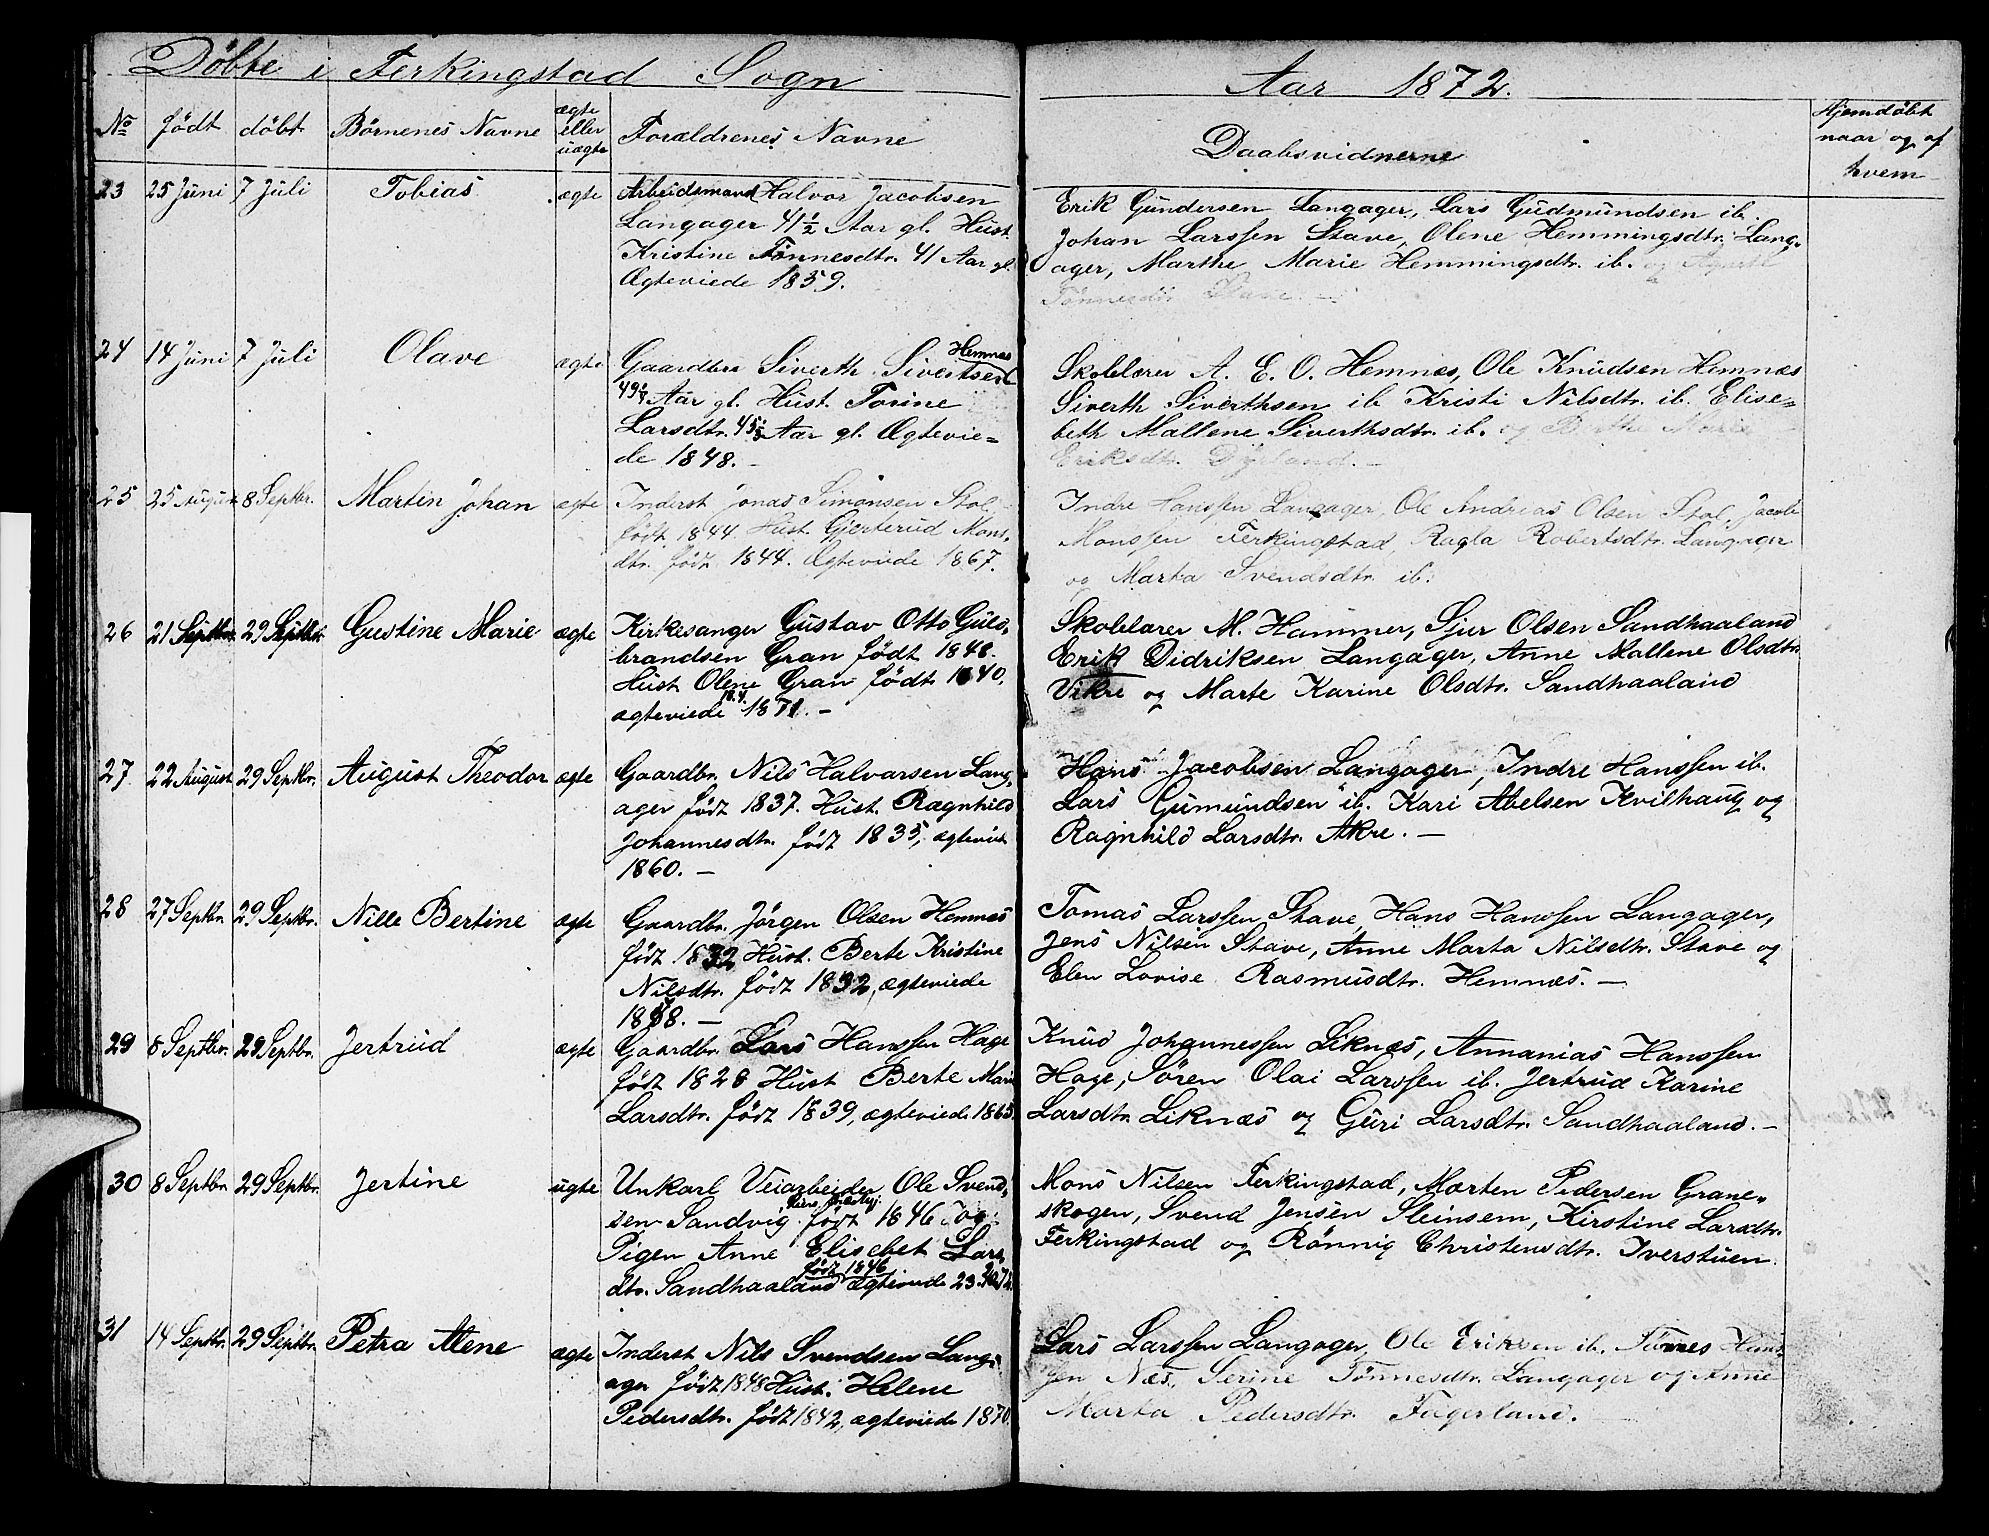 Döbte i Ferkingstad Sogn
Aar 1872.
No födt döbt Börnenes Navne ægte eller uægte Forældrenes Navne
Daabsvidnerne
Hjemdöbt
naar og af
hvem
23 25 Juni 7 Juli Tobias ægte Arbeidsmand Halvor Jacobsen
Langager 41 1/2 Aar gl. Hust.
Kristine Tönnesdtr. 41 Aar gl.
Ægteviede 1859.
Erik Gundersen Langager, Lars Gudmundsen ib.
Johan Larssen Stave, Olene Hemmingsdtr. Lang-
ager, Marthe Marie Hemmingsdtr. ib. og
Tönnesdtr. Stave. —
24 14 Juni 7 Juli Olave ægte Gaardbr. Siverth Sivertsen Hemnæs
Aar gl. Hust. Torine
Larsdtr. Aar gl. Ægtevie=
de 1848. —
Skolelærer A. E. O. Hemnæs, Ole Knudsen Hemnæs
Siverth Siverthsen ib Kristi Nilsdtr. ib. Elise=
beth Mallene Siverthsdtr. ib. og Berthe Marie
Eriksdtr. —
25 25 August 8 Septbr. Martin Johan ægte Inderst Jonas Simonsen Stol,
födt 1844. Hust. Gjerterud Mons-
dtr. födt 1844. Ægteviede 1867.
Indre Hanssen Langager, Ole Andreas Olsen Stol, Jacob
Monssen Ferkingstad, Ragla Robertsdtr. Langager
og Marta Svendsdtr. ib.
26 21 Septbr. 29 Septbr. Gustine Marie ægte Kirkesanger Gustav Otto Gulds-
brandsen Gran födt 1848.
Hust. Olene Gran födt 1840.
ægteviede 1871. —
Skolelærer M. Hammer, Sjur Olsen Sandhaaland
Erik Didriksen Langager, Anne Mallene Olsdtr.
Vikre og Marte Karine Olsdtr. Sandhaaland
27 22 August 29 Septbr. August Theodor ægte Gaardbr. Nils Halvarsen Lang-
ager födt 1837. Hust. Ragnhild
Johannesdtr. födt 1835, ægteviede
1860. —
Hans Jacobsen Langager, Indre Hanssen ib.
Lars Gumundsen ib. Kari Abelsen Kvilhaug og
Ragnhild Larsdtr. Akre. —
28 27 Septbr. 29 Septbr. Nille Bertine ægte Gaardbr. Jörgen Olsen Hemnæs
födt 1832 Hust. Berte Kristine
Nilsdtr. födt 1832, ægteviede
1858. —
Tomas Larssen Stave, Hans Hanssen Langager,
Jens Nilsen Stave, Anne Marta Nilsdtr. Stave og
Elen Lovise Rasmusdtr. Hemnæs. —
29 8 Septbr. 29 Septbr. Jertrud ægte Gaardbr. Lars Hanssen Hage
födt 1828 Hust Berte Marie
Larsdtr. födt 1839, ægteviede 1865
Knud Johannessen Liknæs, Annanias Hanssen
Hage, Sören Olai Larssen ib. Jertrud Karine
Larsdtr. Liknæs og Guri Larsdtr. Sandhaaland. —
30 8 Septbr. 29 Septbr. Jertine ugte Unkarl Veiarbeider Ole Svend-
sen Sandvig födt 1846 og
Pigen Anne Elisebet Lars
dtr. Sandhaaland födt 1846 ægteviede 23
Mons Nilsen Ferkingstad, Morten Pedersen Grane=
skogen, Svend Jensen Steinsem, Kirstine Larsdtr.
Ferkingstad og Rönnig Christensdtr. Iverstuen.
31 14 Septbr. 29 Septbr. Petra Alene ægte Inderst Nils Svendsen Lang-
ager födt 1848 Hust. Helene
Pedersdtr. födt 1842, ægteviede 1870.
Lars Larssen Langager, Ole Eriksen ib. Tönnes Hans
sen Næs, Serine Tönnesdtr. Langager og Anne
Marta Pedersdtr. Fagerland.